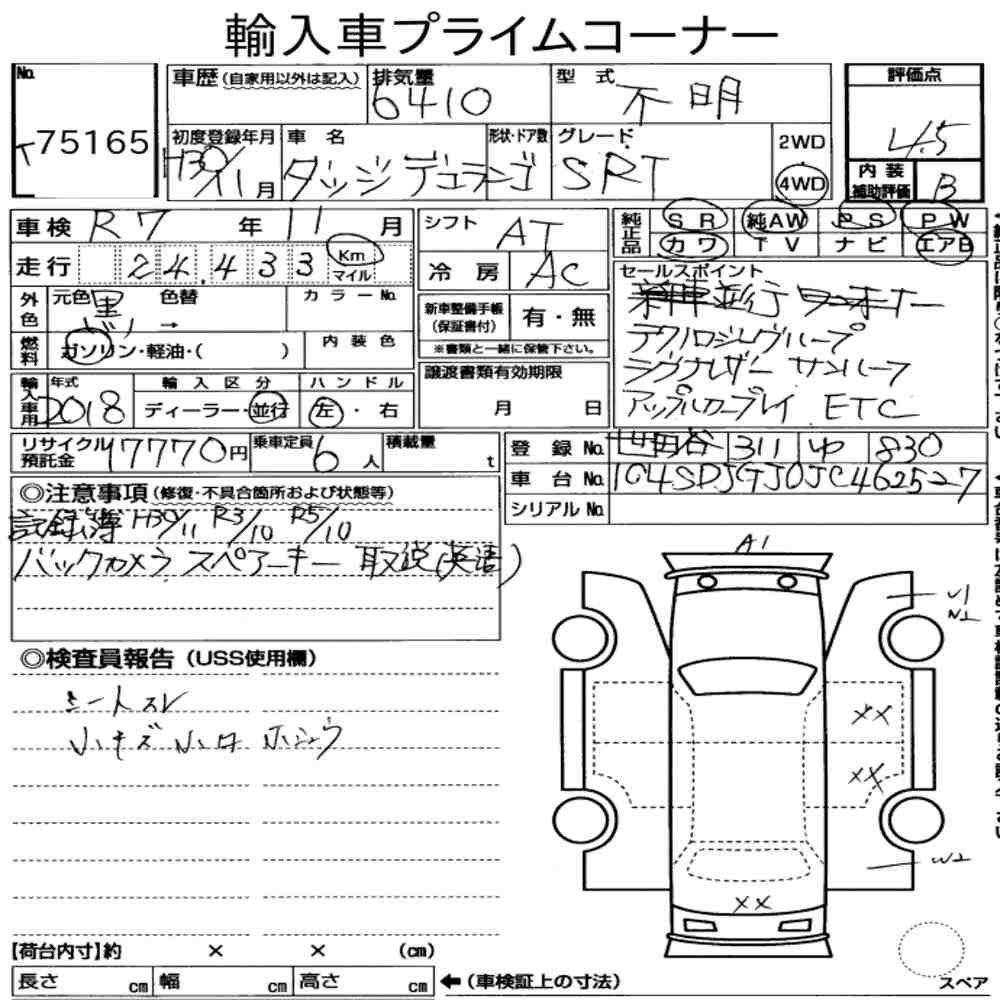 輸入車プライムコーナー
No. 75165
車歴(自家用以外は記入) 排気量 6410 型式 不明
評価点 4.5
初度登録年月 H30/11月 車名 ダッジ デュランゴ 形状・ドア数 グレード SRT 2WD 4WD
内装補助評価 B
車検 R7年11月 シフト AT
純正品 SR 純AW PS PW
カワ TV ナビ エアB
走行 24,433 Km マイル 冷房 AC
セールスポイント
新車並行 ワーオーナー
テクノロジーグループ
ラグナレザー サンルーフ
アップルカープレイ ETC
外色 元色 黒 色替 → カラーNo.
新車整備手帳(保証書付) 有・無
※書類と一緒に保管下さい。
燃料 ガソリン・軽油・( ) 内装色
譲渡書類有効期限 月 日
輸入車用 年式 2018 輸入区分 ディーラー・並行 ハンドル 左・右
リサイクル預託金 17770円 乗車定員 6人 積載量 t
登録No. 世田谷 311 ゆ 830
車台No. 1C4SDJGJ0JC462527
シリアルNo.
◎注意事項(修復・不具合箇所および状態等)
記録簿 H30/11 R3/10 R5/10
バックカメラ スペアーキー 取説(英語)
◎検査員報告(USS使用欄)
シートスレ
小キズ 小凹 ホシュウ
A1
U1
W1
XX
XX
W2
XX
【荷台内寸】約 × × (cm)
長さ cm 幅 cm 高さ cm ←(車検証上の寸法)
スペア